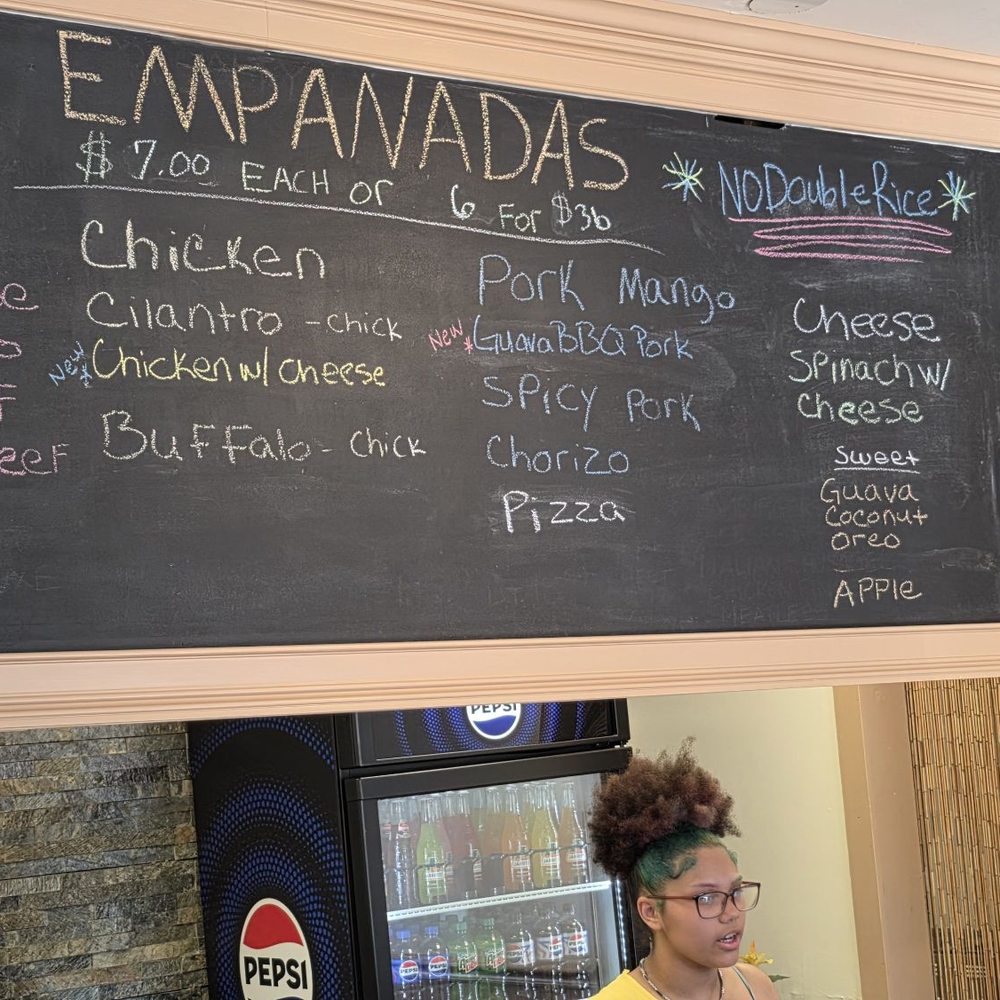 EMPANADAS
$7.00 EACH or 6 For $36
Chicken
Cilantro - chick
New * Chicken w/ cheese
Buffalo - chick
Pork Mango
New * Guava BBQ Pork
Spicy Pork
Chorizo
Pizza
* NO Double Rice *
Cheese
Spinach w/
Cheese
Sweet
Guava
Coconut
Oreo
Apple
PEPSI
PEPSI